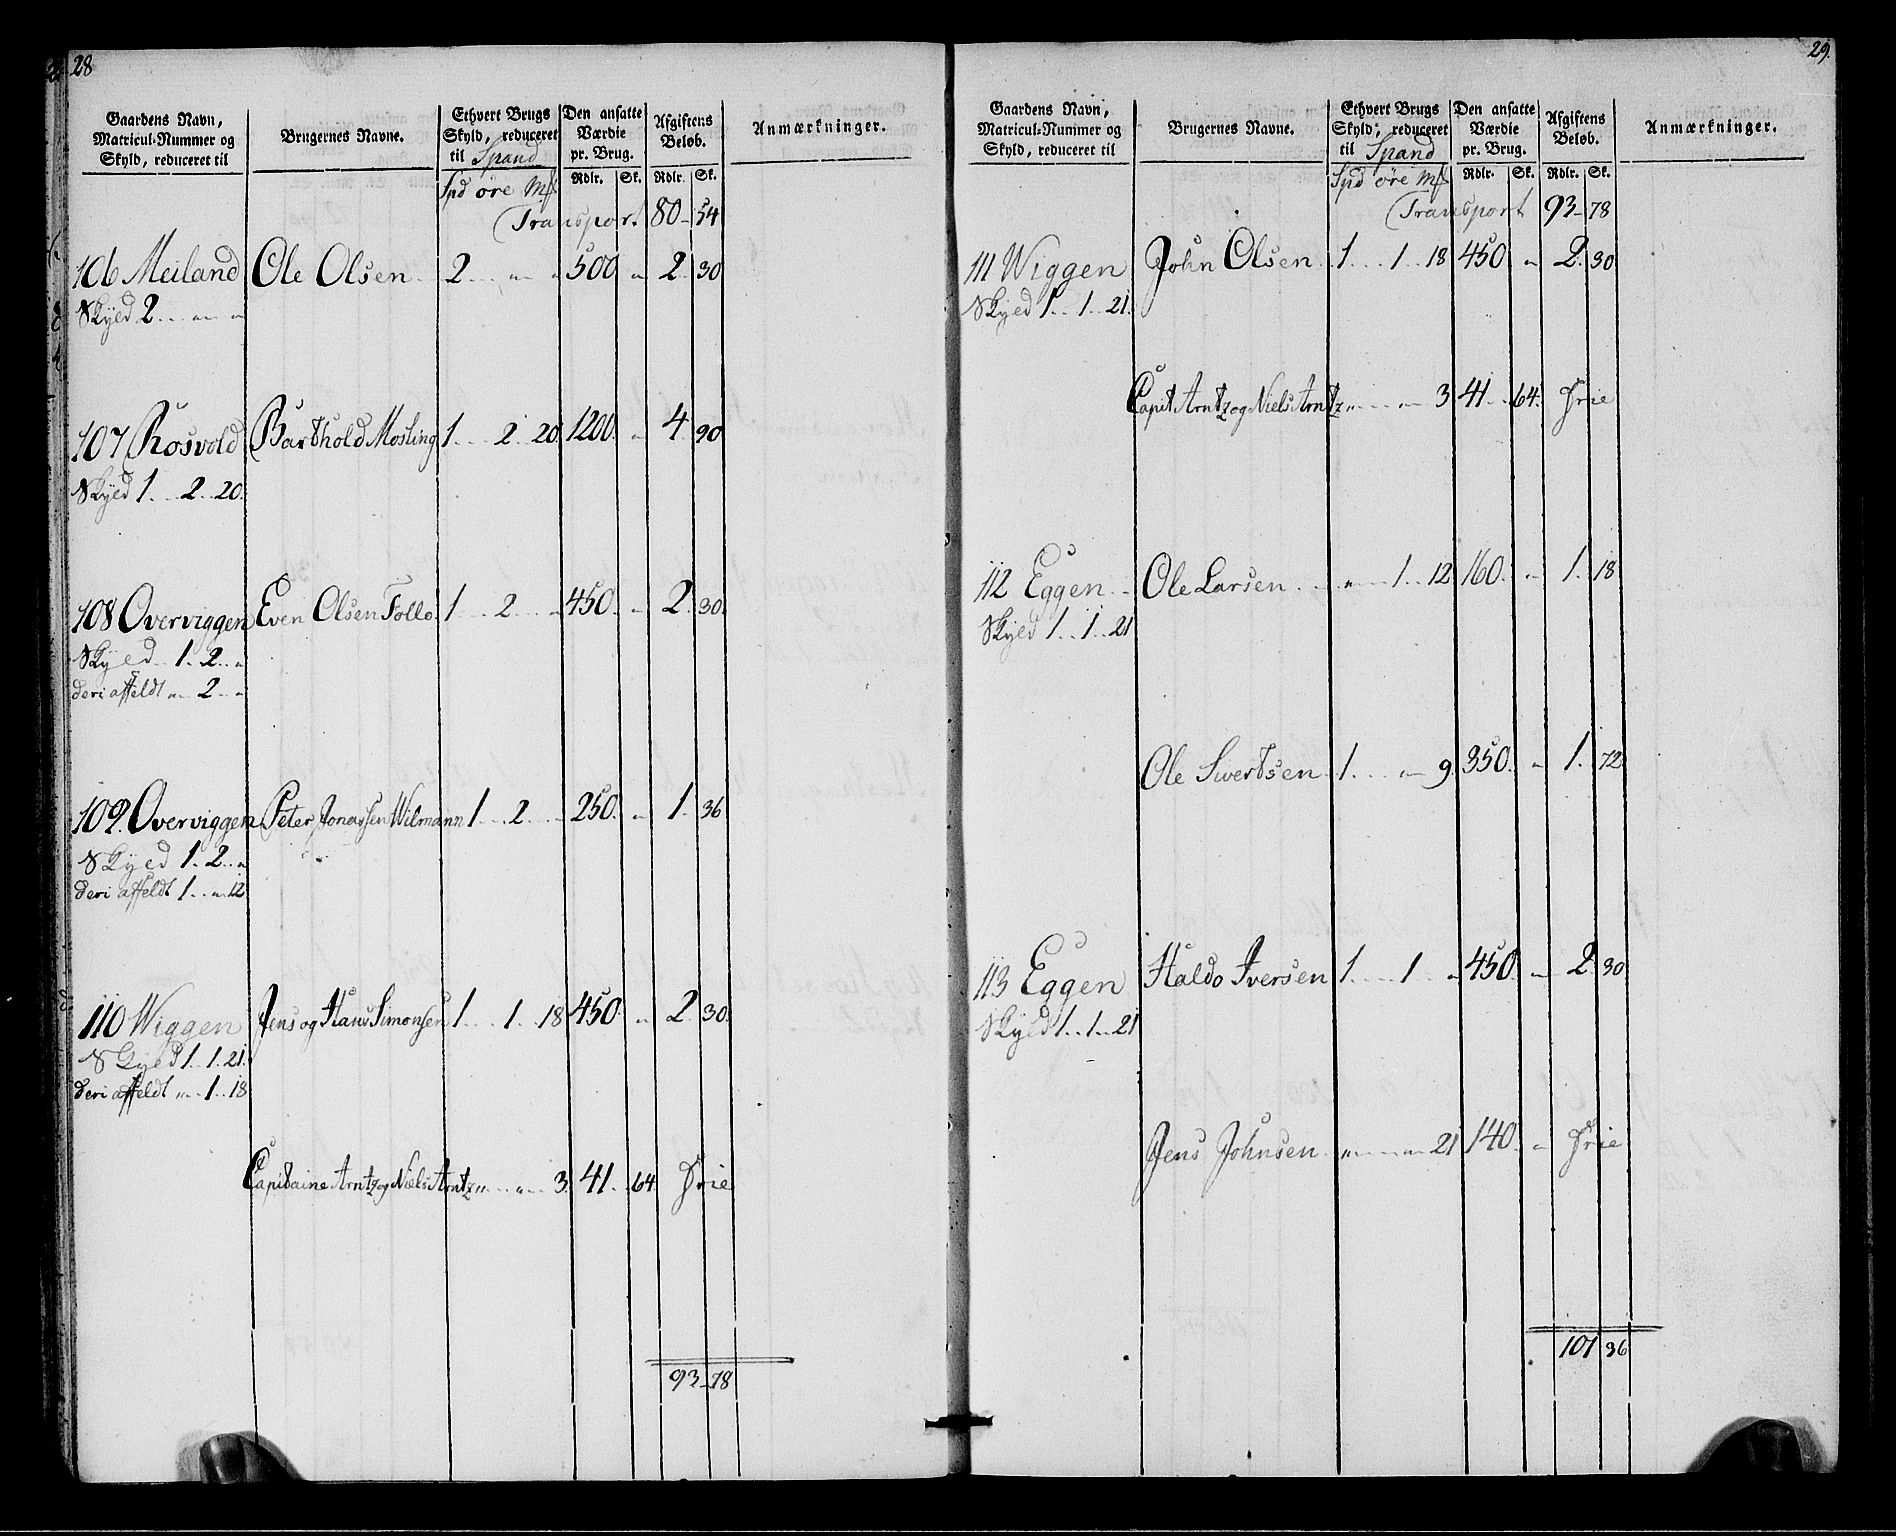 28
Gaardens Navn, Matricul-Nummer og Skyld, reduceret til | Brugernes Navne. | Ethvert Brugs Skyld, reduceret til Spand | Den ansatte Værdie pr. Brug. | Afgiftens Beløb. | Anmærkninger.
Spd øre Mk | Rdlr. | Sk. | Rdlr. | Sk.
Transport 80 - 54
106 Meiland | Ole Olsen | 2 " " | 500 " | 2. 30
Skyld 2 " "
107 Rosvold | Barthold Mosling | 1. 2. 20. | 1200. " | 4. 90
Skyld 1. 2. 20.
108 Overviggen | Even Olsen Follo. | 1. 2. " | 450. " | 2. 30.
Skyld 1. 2. "
deri affeldt " 2. "
109. Overviggen | Peter Jonassen Wilmann | 1. 2. " | 250. " | 1. 36
Skyed 1. 2. "
deri affeldt 1. " 12
110 Wiggen | Jens og Hans Simonsen | 1. 1. 18 | 450. " | 2. 30.
Skyed 1. 1. 21.
deri affeldt " 1. 18
Capitaine Arntz og Niels Arntz | " " 3. | 41. 64. | Frie
93 - 78
29.
Gaardens Navn, Matricul-Nummer og Skyld, reduceret til | Brugernes Navne. | Ethvert Brugs Skyld, reduceret til Spand | Den ansatte Værdie pr. Brug. | Afgiftens Beløb. | Anmærkninger.
Spd øre Mk | Rdlr. | Sk. | Rdlr. | Sk.
Transport 93 - 78
111 Wiggen | John Olsen | 1. 1. 18 | 450 " | 2. 30
Skyed 1. 1. 21.
Capit Arntz og Niels Arntz | " " 3 | 41. 64. | Frie
112 Eggen | Ole Larsen | " 1. 12 | 160. " | 1. 18
Skyed 1. 1. 21
Ole Sivertsen | 1. " 9. | 350. " | 1. 72
113 Eggen | Haldo Iversen | 1. 1 " | 450. " | 2. 30
Skyed 1. 1. 21
Jens Johnsen | " " 21 | 140. " | Frie
101 36